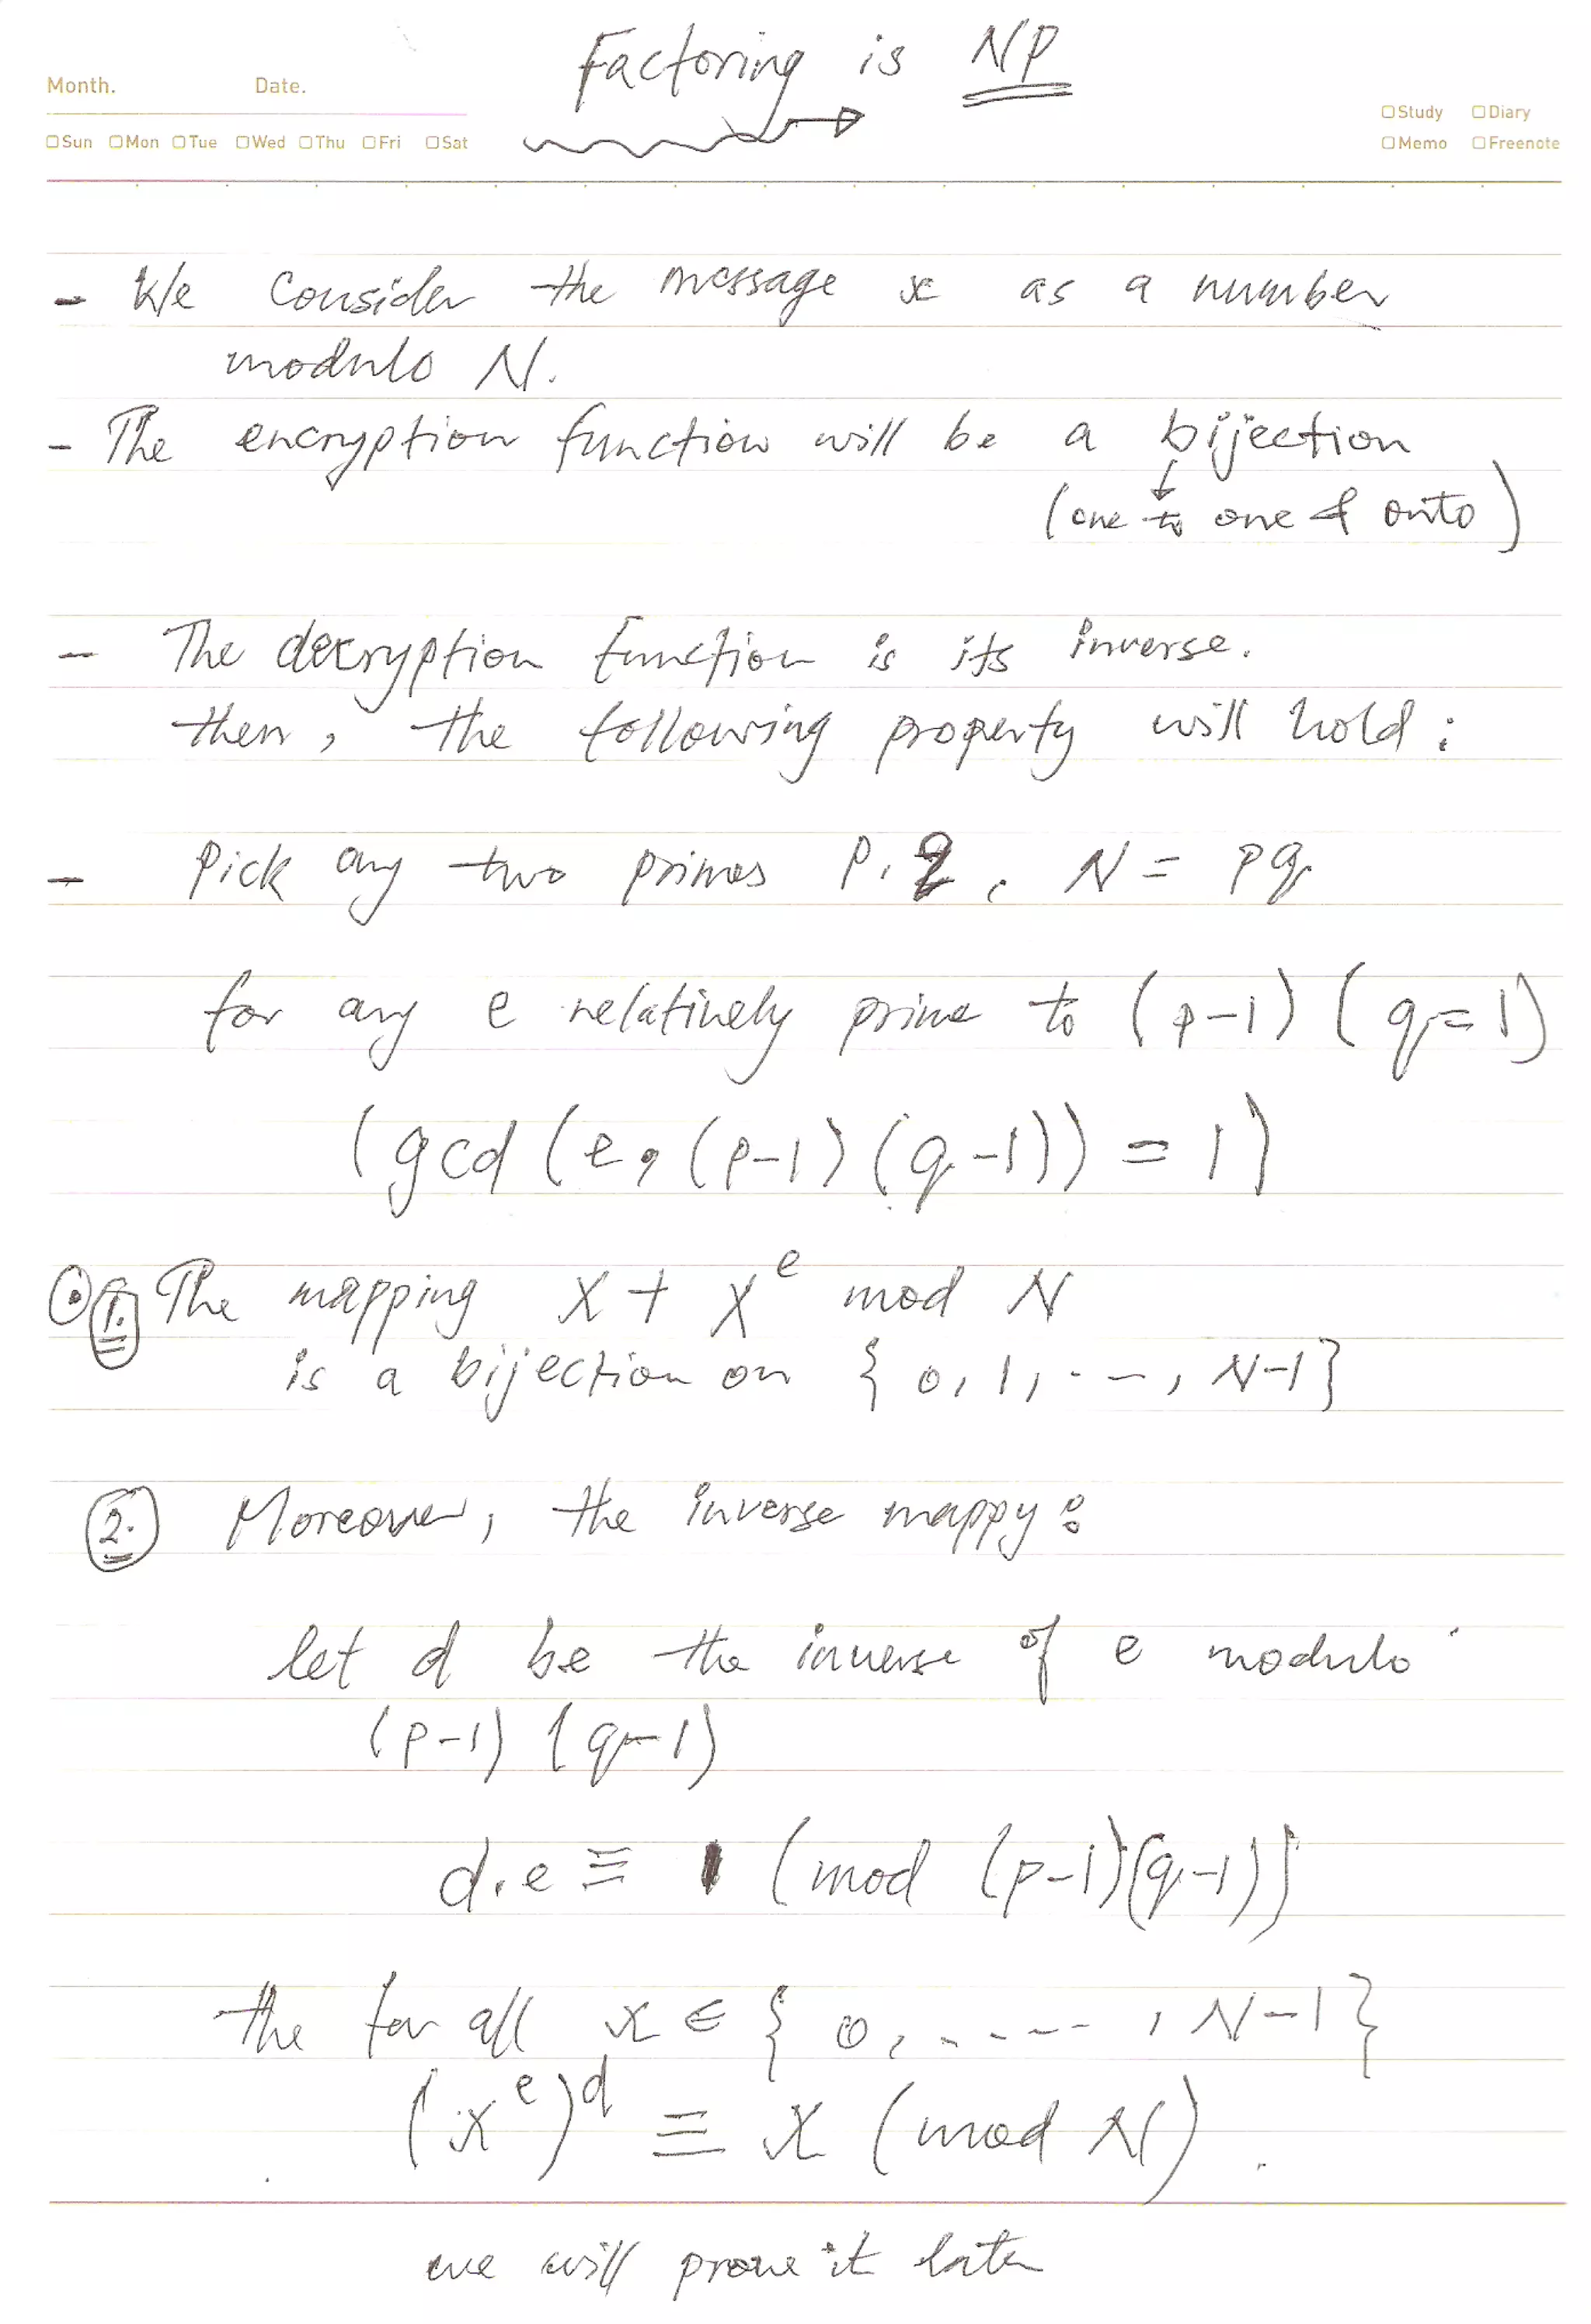 Factoring is NP
Month. Date.
□Study □Diary
□Sun □Mon □Tue □Wed □Thu □Fri □Sat
□Memo □Freenote
- We Consider the message x as a number
modulo N.
- The encryption function will be a bijection
(one to one & onto)
- The decryption function is its inverse.
then, the following property will hold:
- Pick any two primes p, q, N = pq
for any e relatively prime to (p-1)(q-1)
(gcd(e, (p-1)(q-1)) = 1)
1. The mapping X + X^e mod N
is a bijection on {0, 1, .--, N-1}
2. Moreover, the inverse mappy:
let d be the inverse of e modulo
(p-1)(q-1)
d.e ≡ 1 (mod (p-1)(q-1))
the for all x ∈ {0, ....-- , N-1}
(x^e)^d ≡ x (mod N).
we will prove it later